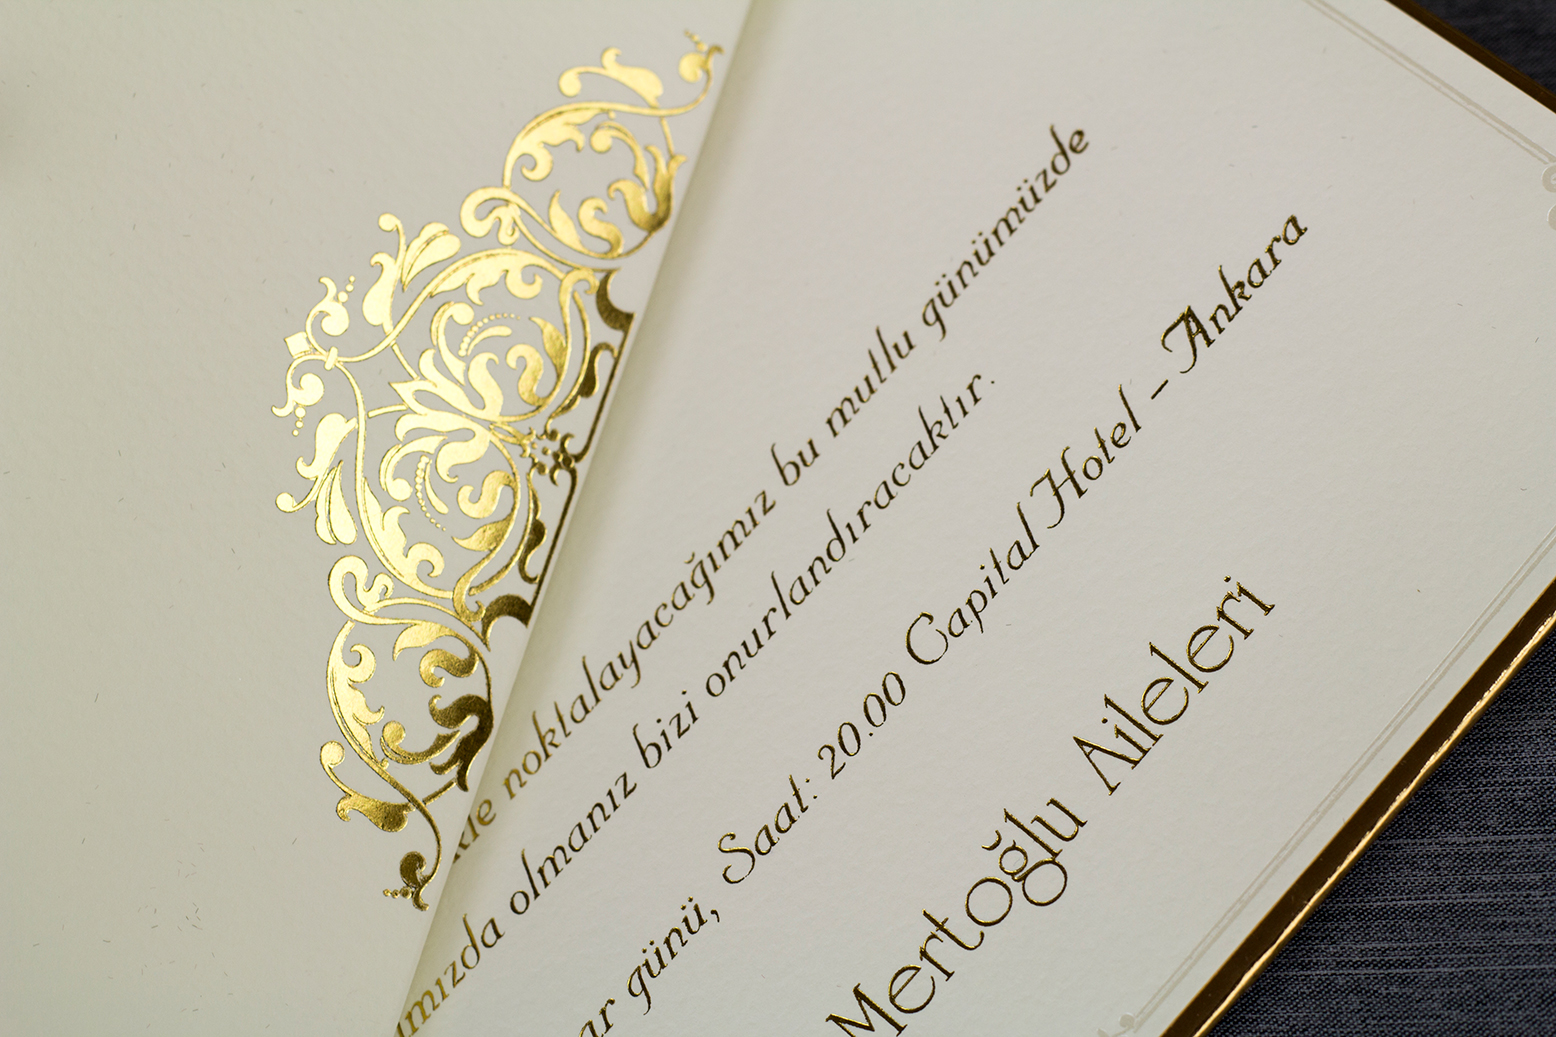 noktalayacağımız bu mutlu günümüzde
olmanız bizi onurlandıracaktır.
günü, Saat: 20.00 Capital Hotel - Ankara
Mertoğlu Aileleri